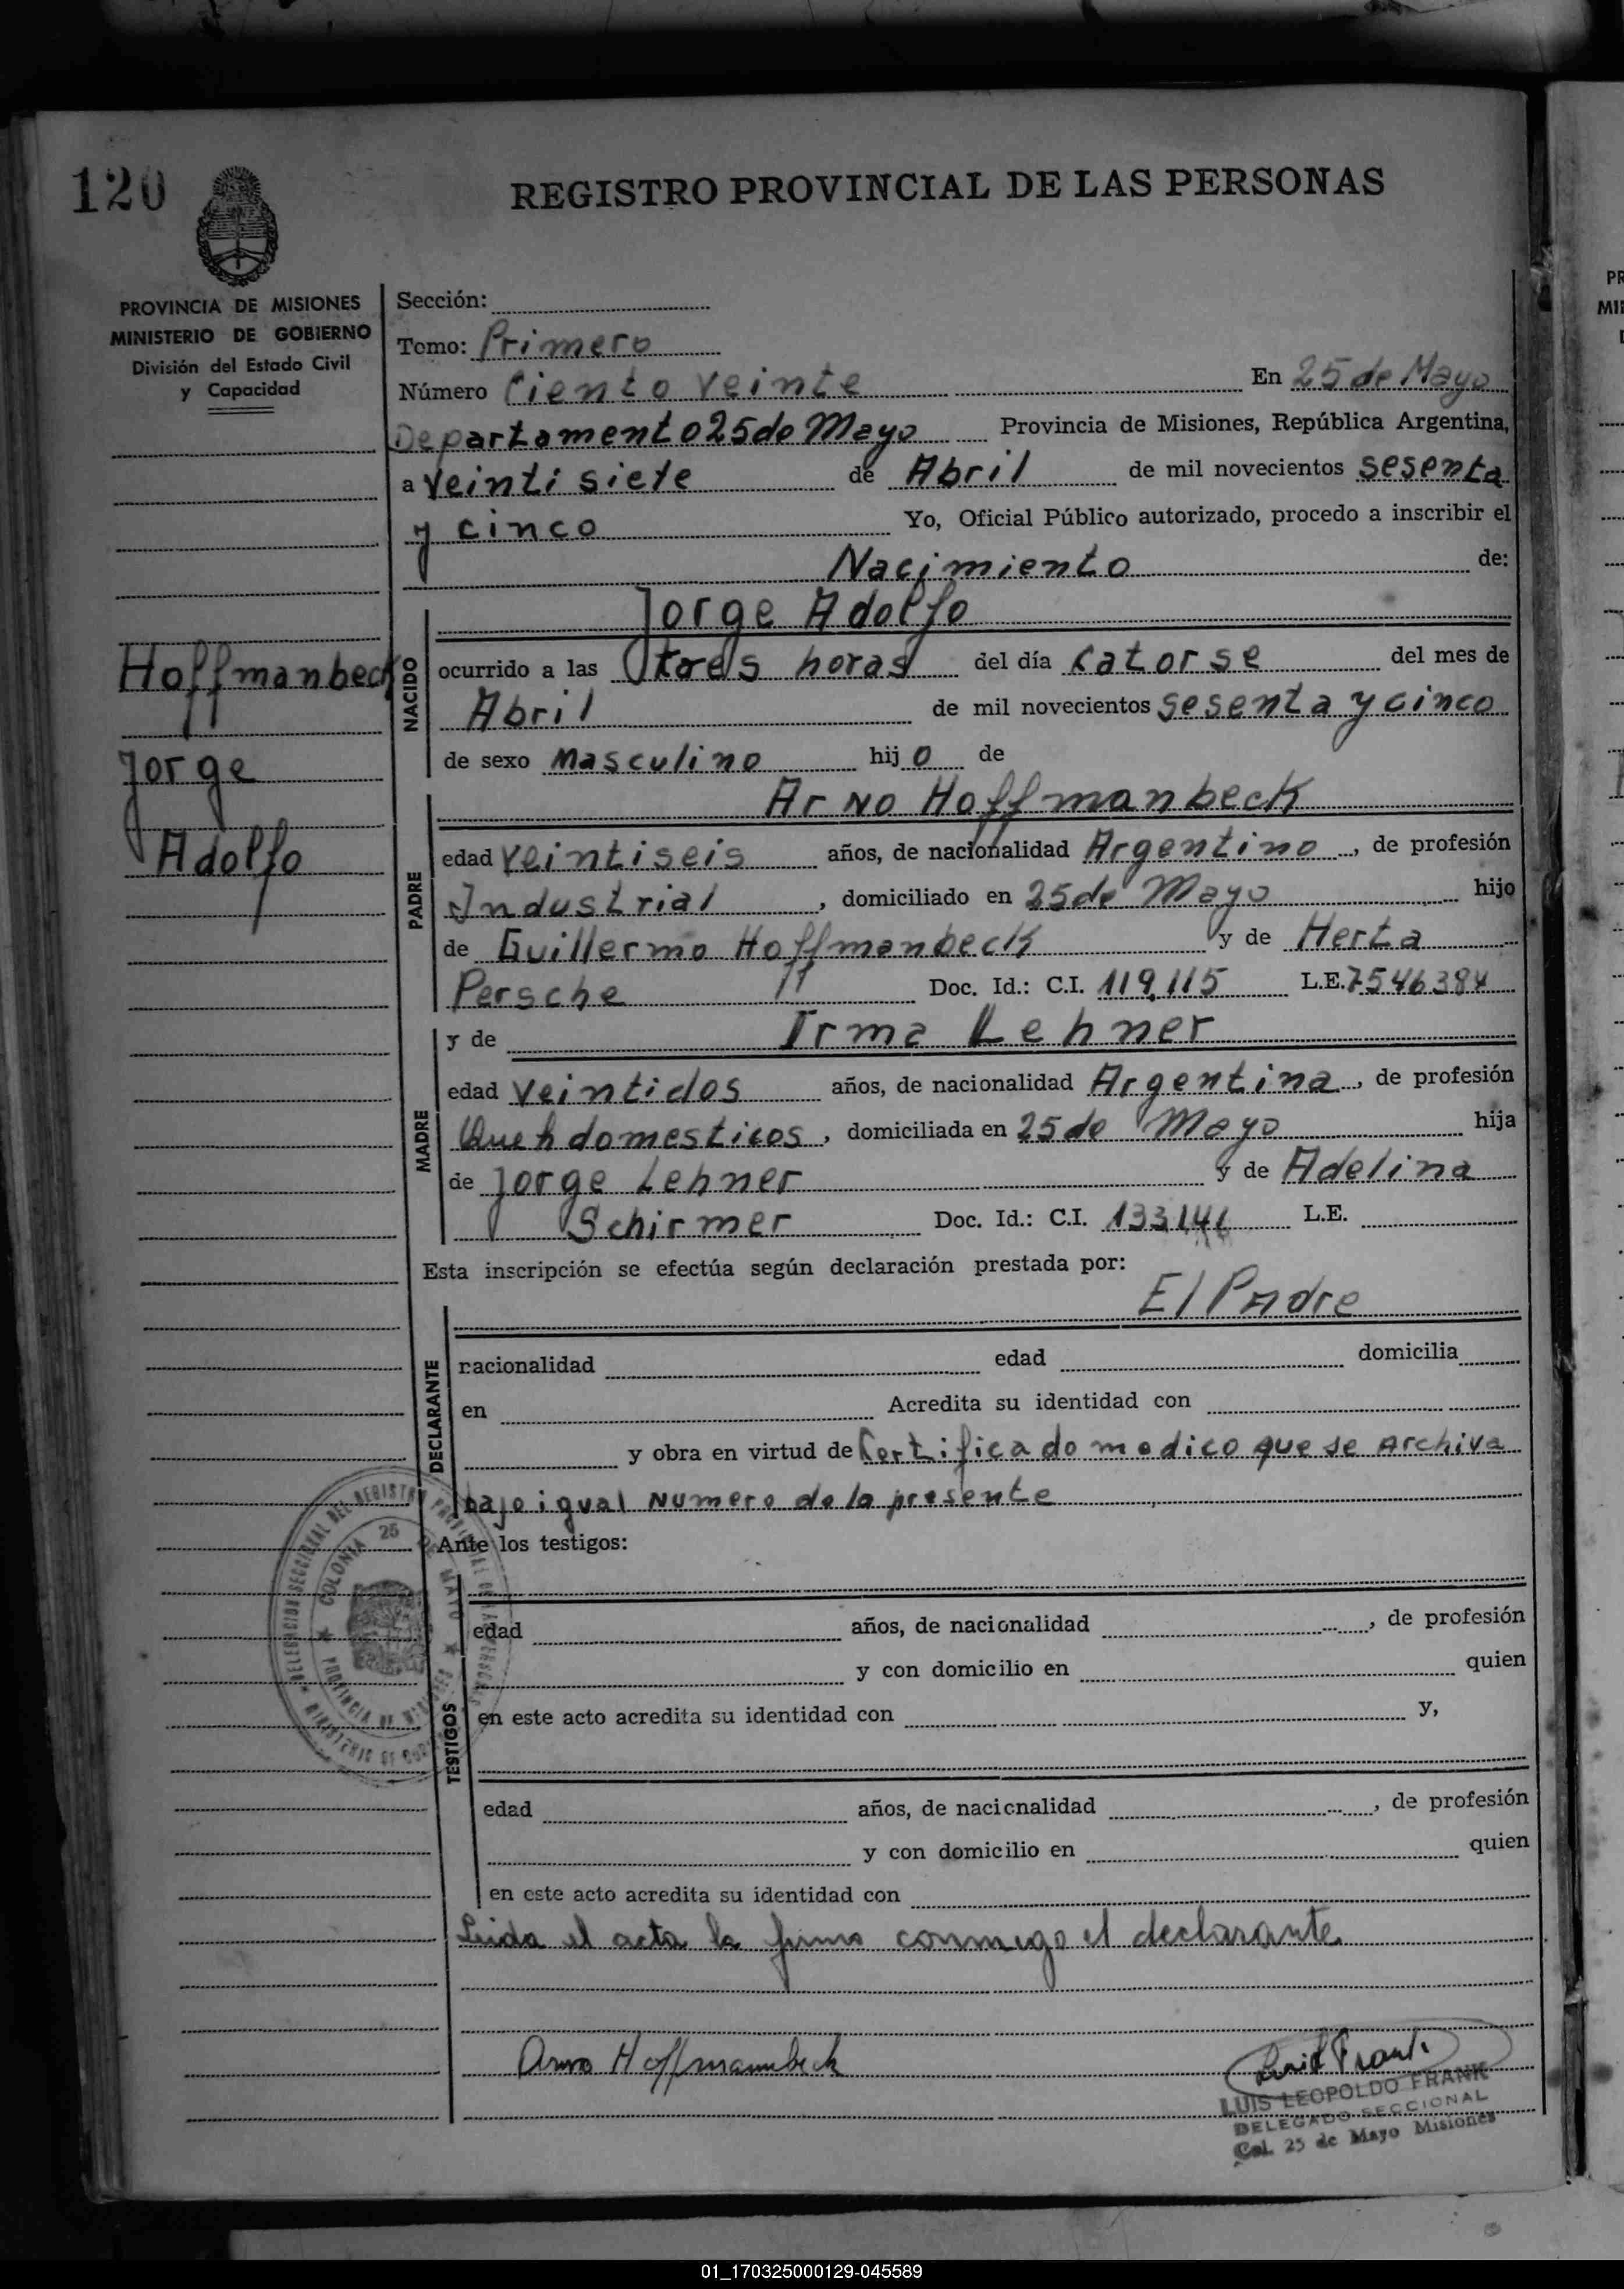 120
REGISTRO PROVINCIAL DE LAS PERSONAS
PROVINCIA DE MISIONES
MINISTERIO DE GOBIERNO
División del Estado Civil
y Capacidad
Sección:
Tomo: Primero
Número Ciento veinte En 25 de Mayo
Departamento 25 de Mayo Provincia de Misiones, República Argentina,
a veinti siete de Abril de mil novecientos sesenta
y cinco Yo, Oficial Público autorizado, procedo a inscribir el
Nacimiento de:
Jorge Adolfo
Hoffmanbeck
Jorge
Adolfo
NACIDO
ocurrido a las tres horas del día catorse del mes de
Abril de mil novecientos sesenta y cinco
de sexo masculino hijo de
PADRE
Arno Hoffmanbeck
edad veintiseis años, de nacionalidad Argentino, de profesión
Industrial, domiciliado en 25 de Mayo hijo
de Guillermo Hoffmanbeck y de Herta
Persche Doc. Id.: C.I. 119.115 L.E. 7546384
MADRE
y de Irma Lehner
edad veintidos años, de nacionalidad Argentina, de profesión
Queh domesticos, domiciliada en 25 de Mayo hija
de Jorge Lehner y de Adelina
Schirmer Doc. Id.: C.I. L.E.
Esta inscripción se efectúa según declaración prestada por:
El Padre
DECLARANTE
nacionalidad edad domicilia
en Acredita su identidad con
y obra en virtud de Certificado medico que se Archiva
bajo igual Numero de la presente
Ante los testigos:
TESTIGOS
edad años, de nacionalidad , de profesión
y con domicilio en quien
en este acto acredita su identidad con y,
edad años, de nacionalidad , de profesión
y con domicilio en quien
en este acto acredita su identidad con
Leida el acta la firma conmigo el declarante
DELEGACION SECCIONAL DEL REGISTRO PROVINCIAL DE LAS PERSONAS
MINISTERIO DE GOBIERNO
COLONIA 25 DE MAYO
PROVINCIA DE MISIONES
Arno Hoffmannbeck
Luis Frank
LUIS LEOPOLDO FRANK
DELEGADO SECCIONAL
Col. 25 de Mayo Misiones
01_170325000129-045589